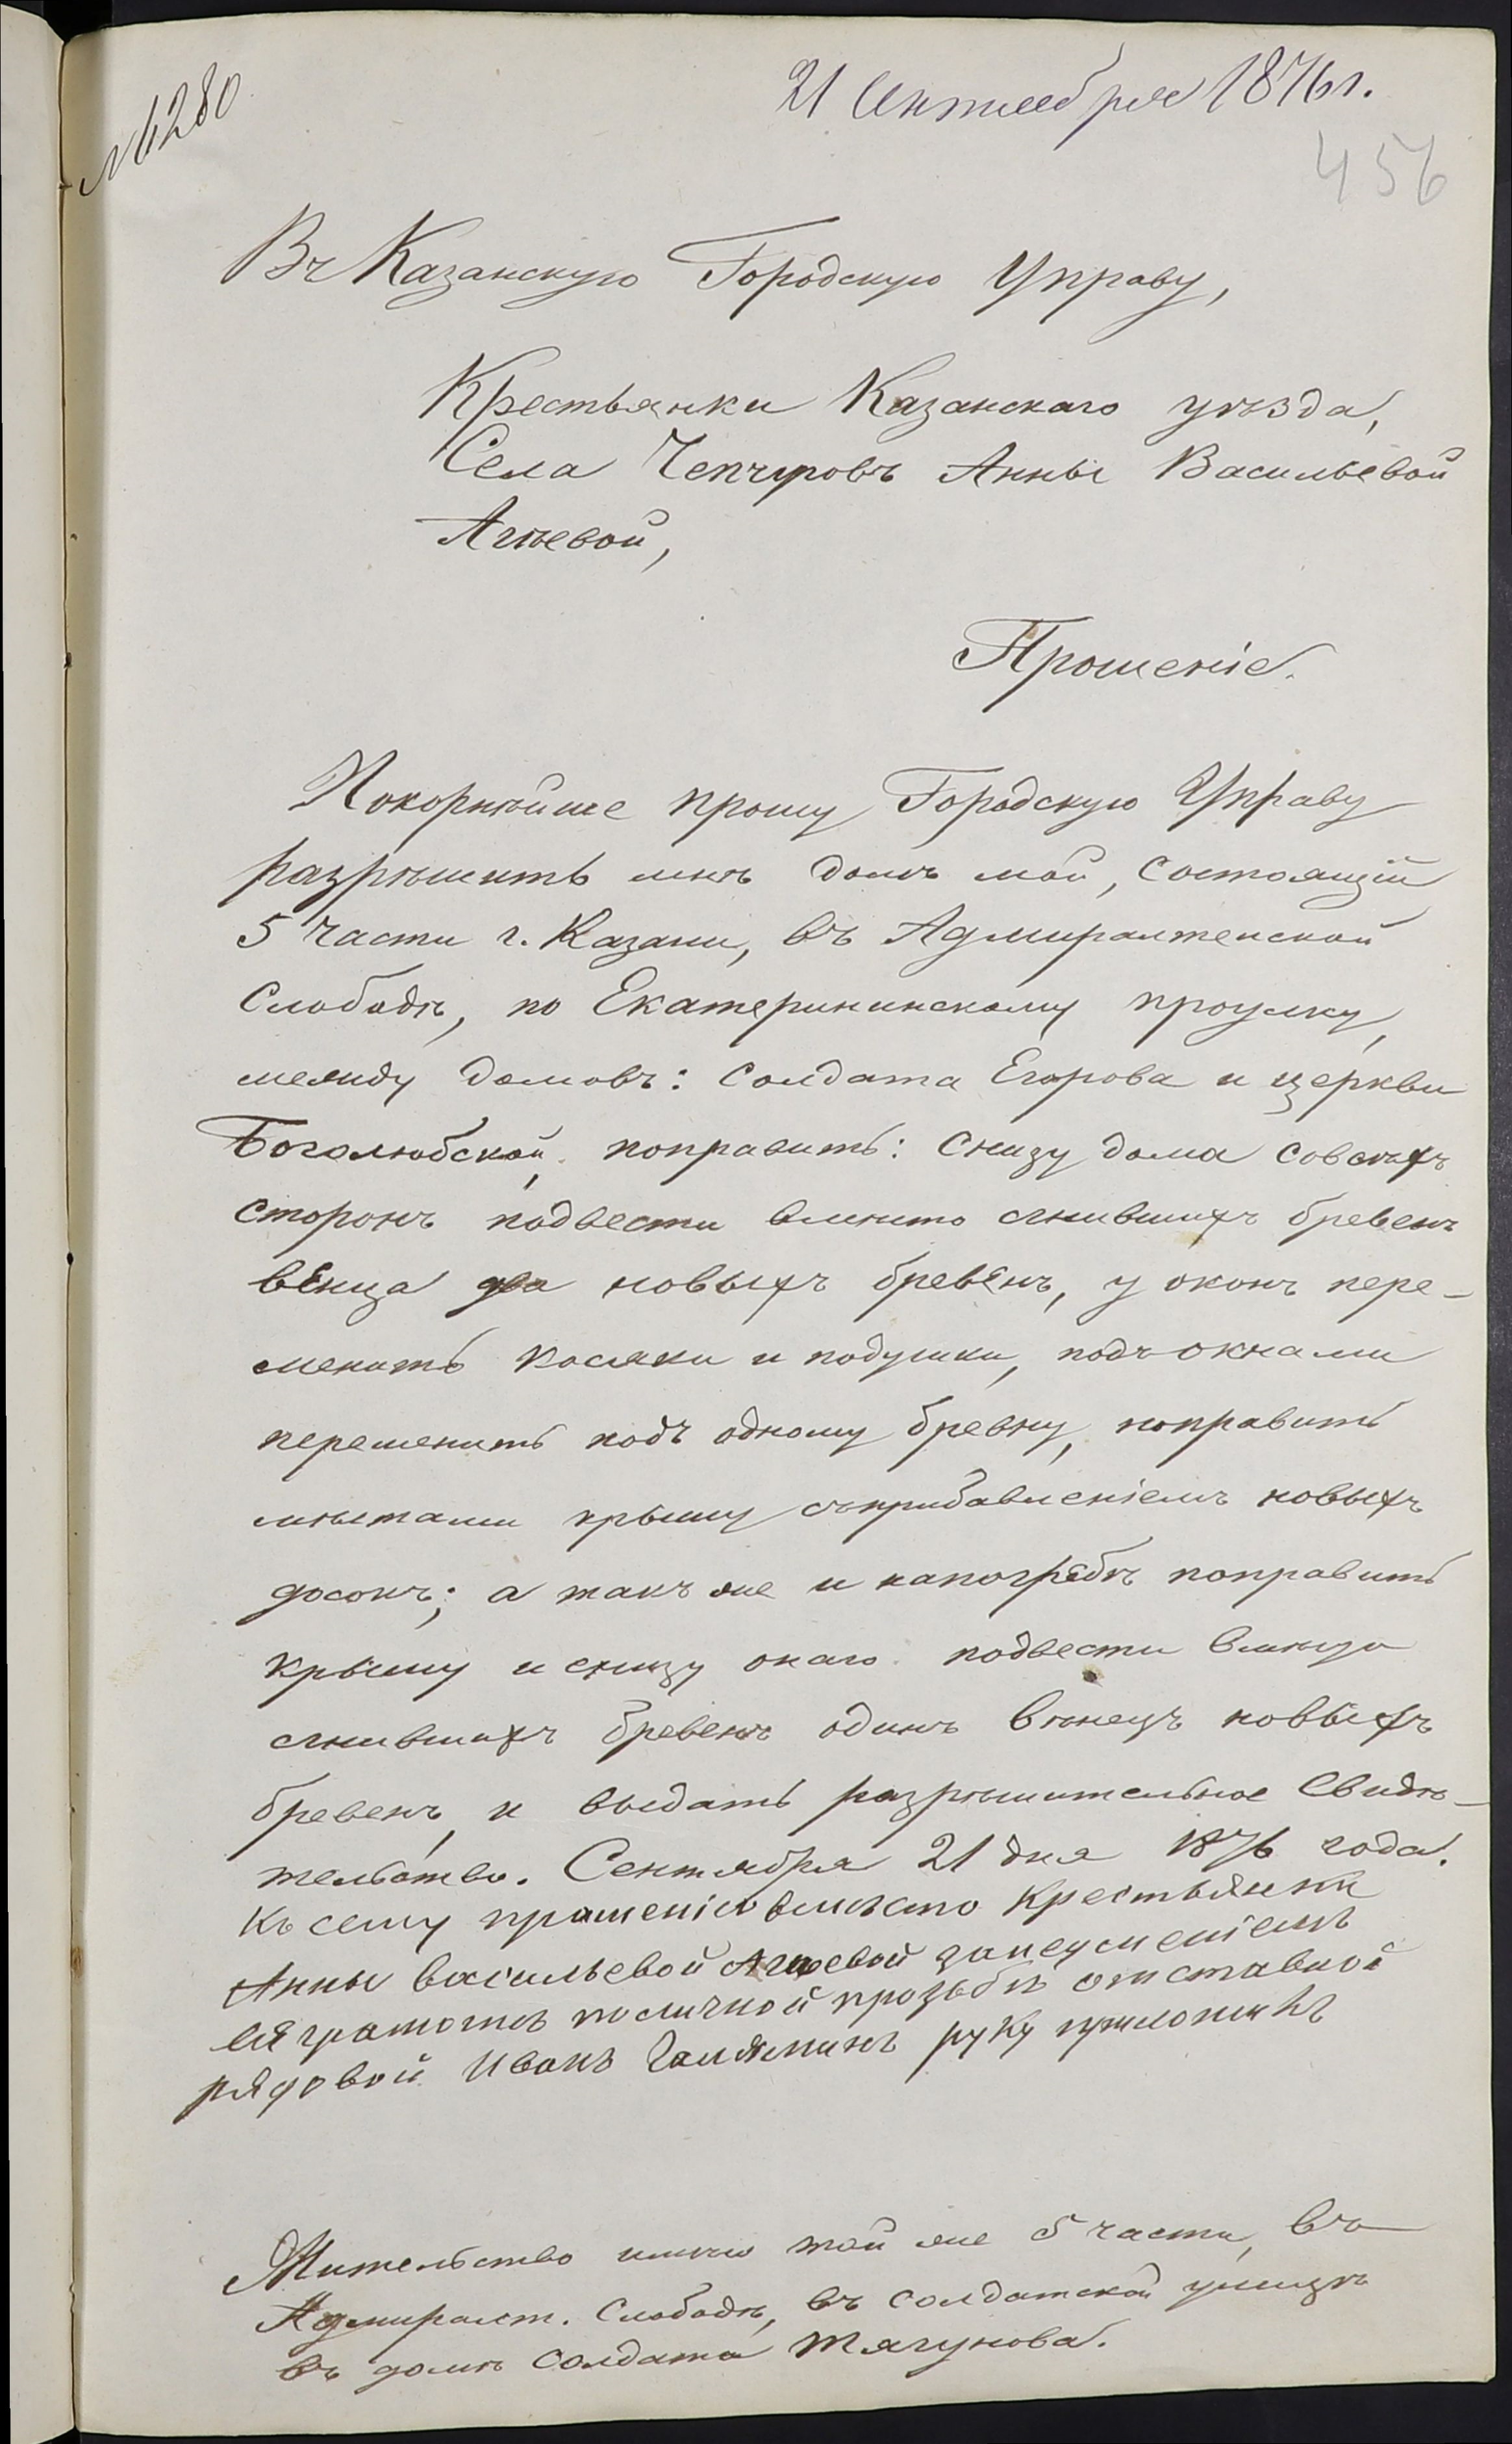 № 6280
21 Сентября 1876 г.
456
Въ Казанскую Городскую Управу,
Крестьянки Казанскаго уѣзда,
Села Чепчуговъ Анны Васильевой
Агѣевой,
Прошеніе.
Покорнѣйше прошу Городскую Управу
разрѣшить мнѣ домъ мой, состоящій
5 части г. Казани, въ Адмиралтейской
Слободѣ, по Екатерининскому проулку,
между домовъ: Солдата Егорова и церкви
Боголюбской, поправить: Снизу дома совсѣхъ
сторонъ подвести вмѣсто сгнившихъ бревенъ
венца два новыхъ бревенъ, у оконъ пере-
менить косяки и подушки, подъ окнами
переменить подъ одному бревну, поправить
мѣстами крышу съприбавленіемъ новыхъ
досокъ; а такъ же и напогребѣ поправить
крышу и снизу онаго подвести вмѣсто
сгнившихъ бревенъ одинъ вѣнецъ новыхъ
бревенъ, и выдать разрѣшительное Свидѣ-
тельство. Сентября 21 дня 1876 года.
Къ сему прошенію вместо крестьянки
Анны васильевой Агѣевой занеуменіемъ
ея грамотѣ поличной прозьбѣ отставной
рядовой Иванъ руку приложилъ
Жительство имѣю той же 5 части, въ
Адмиралт. Слободѣ, въ солдатской улицѣ
въ домѣ солдата Тягунова.